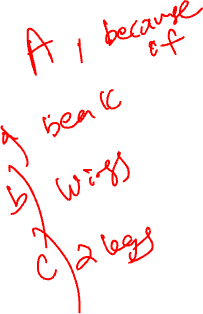 A, because
of
a) beak
b) wings
c) 2 legs